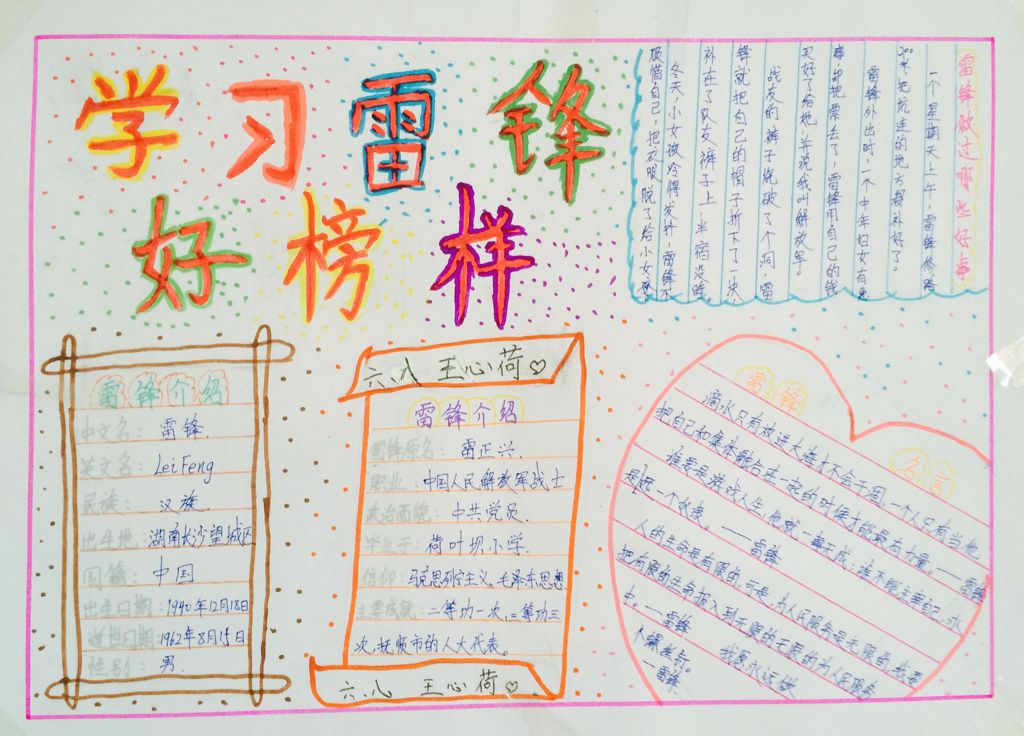 学习雷锋
好榜样
雷锋做过哪些好事
一个星期天上午,雷锋修路
200米,把坑洼的地方都补好了。
雷锋外出时,一个中年妇女有急
事,却把票丢了,雷锋用自己的钱
买好了给她,并说我叫解放军。
战友的裤子烧破了个洞,雷
锋就把自己的帽子折下了一块,
补在了队友裤子上,半宿没睡。
冬天,小女孩冷得发抖,雷锋不
顾惜自己,把衣服脱了给小女孩。
雷锋介绍
中文名:雷锋
英文名:Lei Feng
民族:汉族
出生地:湖南长沙望城区
国籍:中国
出生日期:1940年12月18日
逝世日期:1962年8月15日
性别:男
六.八 王心荷♡
雷锋介绍
雷锋原名:雷正兴.
职业:中国人民解放军战士
政治面貌:中共党员.
毕业于:荷叶坝小学.
信仰:马克思列宁主义,毛泽东思想
主要成就:二等功一次,三等功三
次,抚顺市的人大代表。
六.八 王心荷♡
雷锋
名言
滴水只有放进大海才不会干涸,一个人只有当他
把自己和集体融合在一起的时候才能最有力量。——雷锋
谁要是游戏人生,他就一事无成;谁不能主宰自己,永
远是一个奴隶。——雷锋
人的生命是有限的,可是,为人民服务是无限的,我要
把有限的生命投入到无限的无限的为人民服务
中。——雷锋
我愿永远做
个螺丝钉。
—雷锋